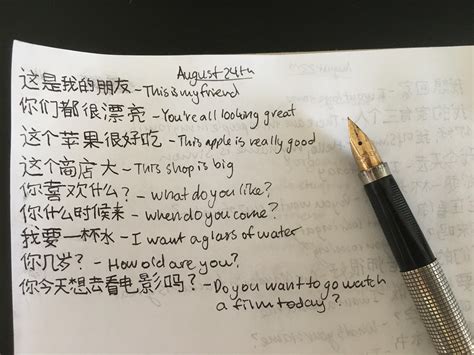 August 24th
这是我的朋友 - This is my friend
你们都很漂亮 - You're all looking great
这个苹果很好吃 - This apple is really good
这个商店大 - This shop is big
你喜欢什么? - what do you like?
你什么时候来 - when do you come?
我要一杯水 - I want a glass of water
你几岁? - How old are you?
你今天想去看电影吗? - Do you want to go watch
a film today?